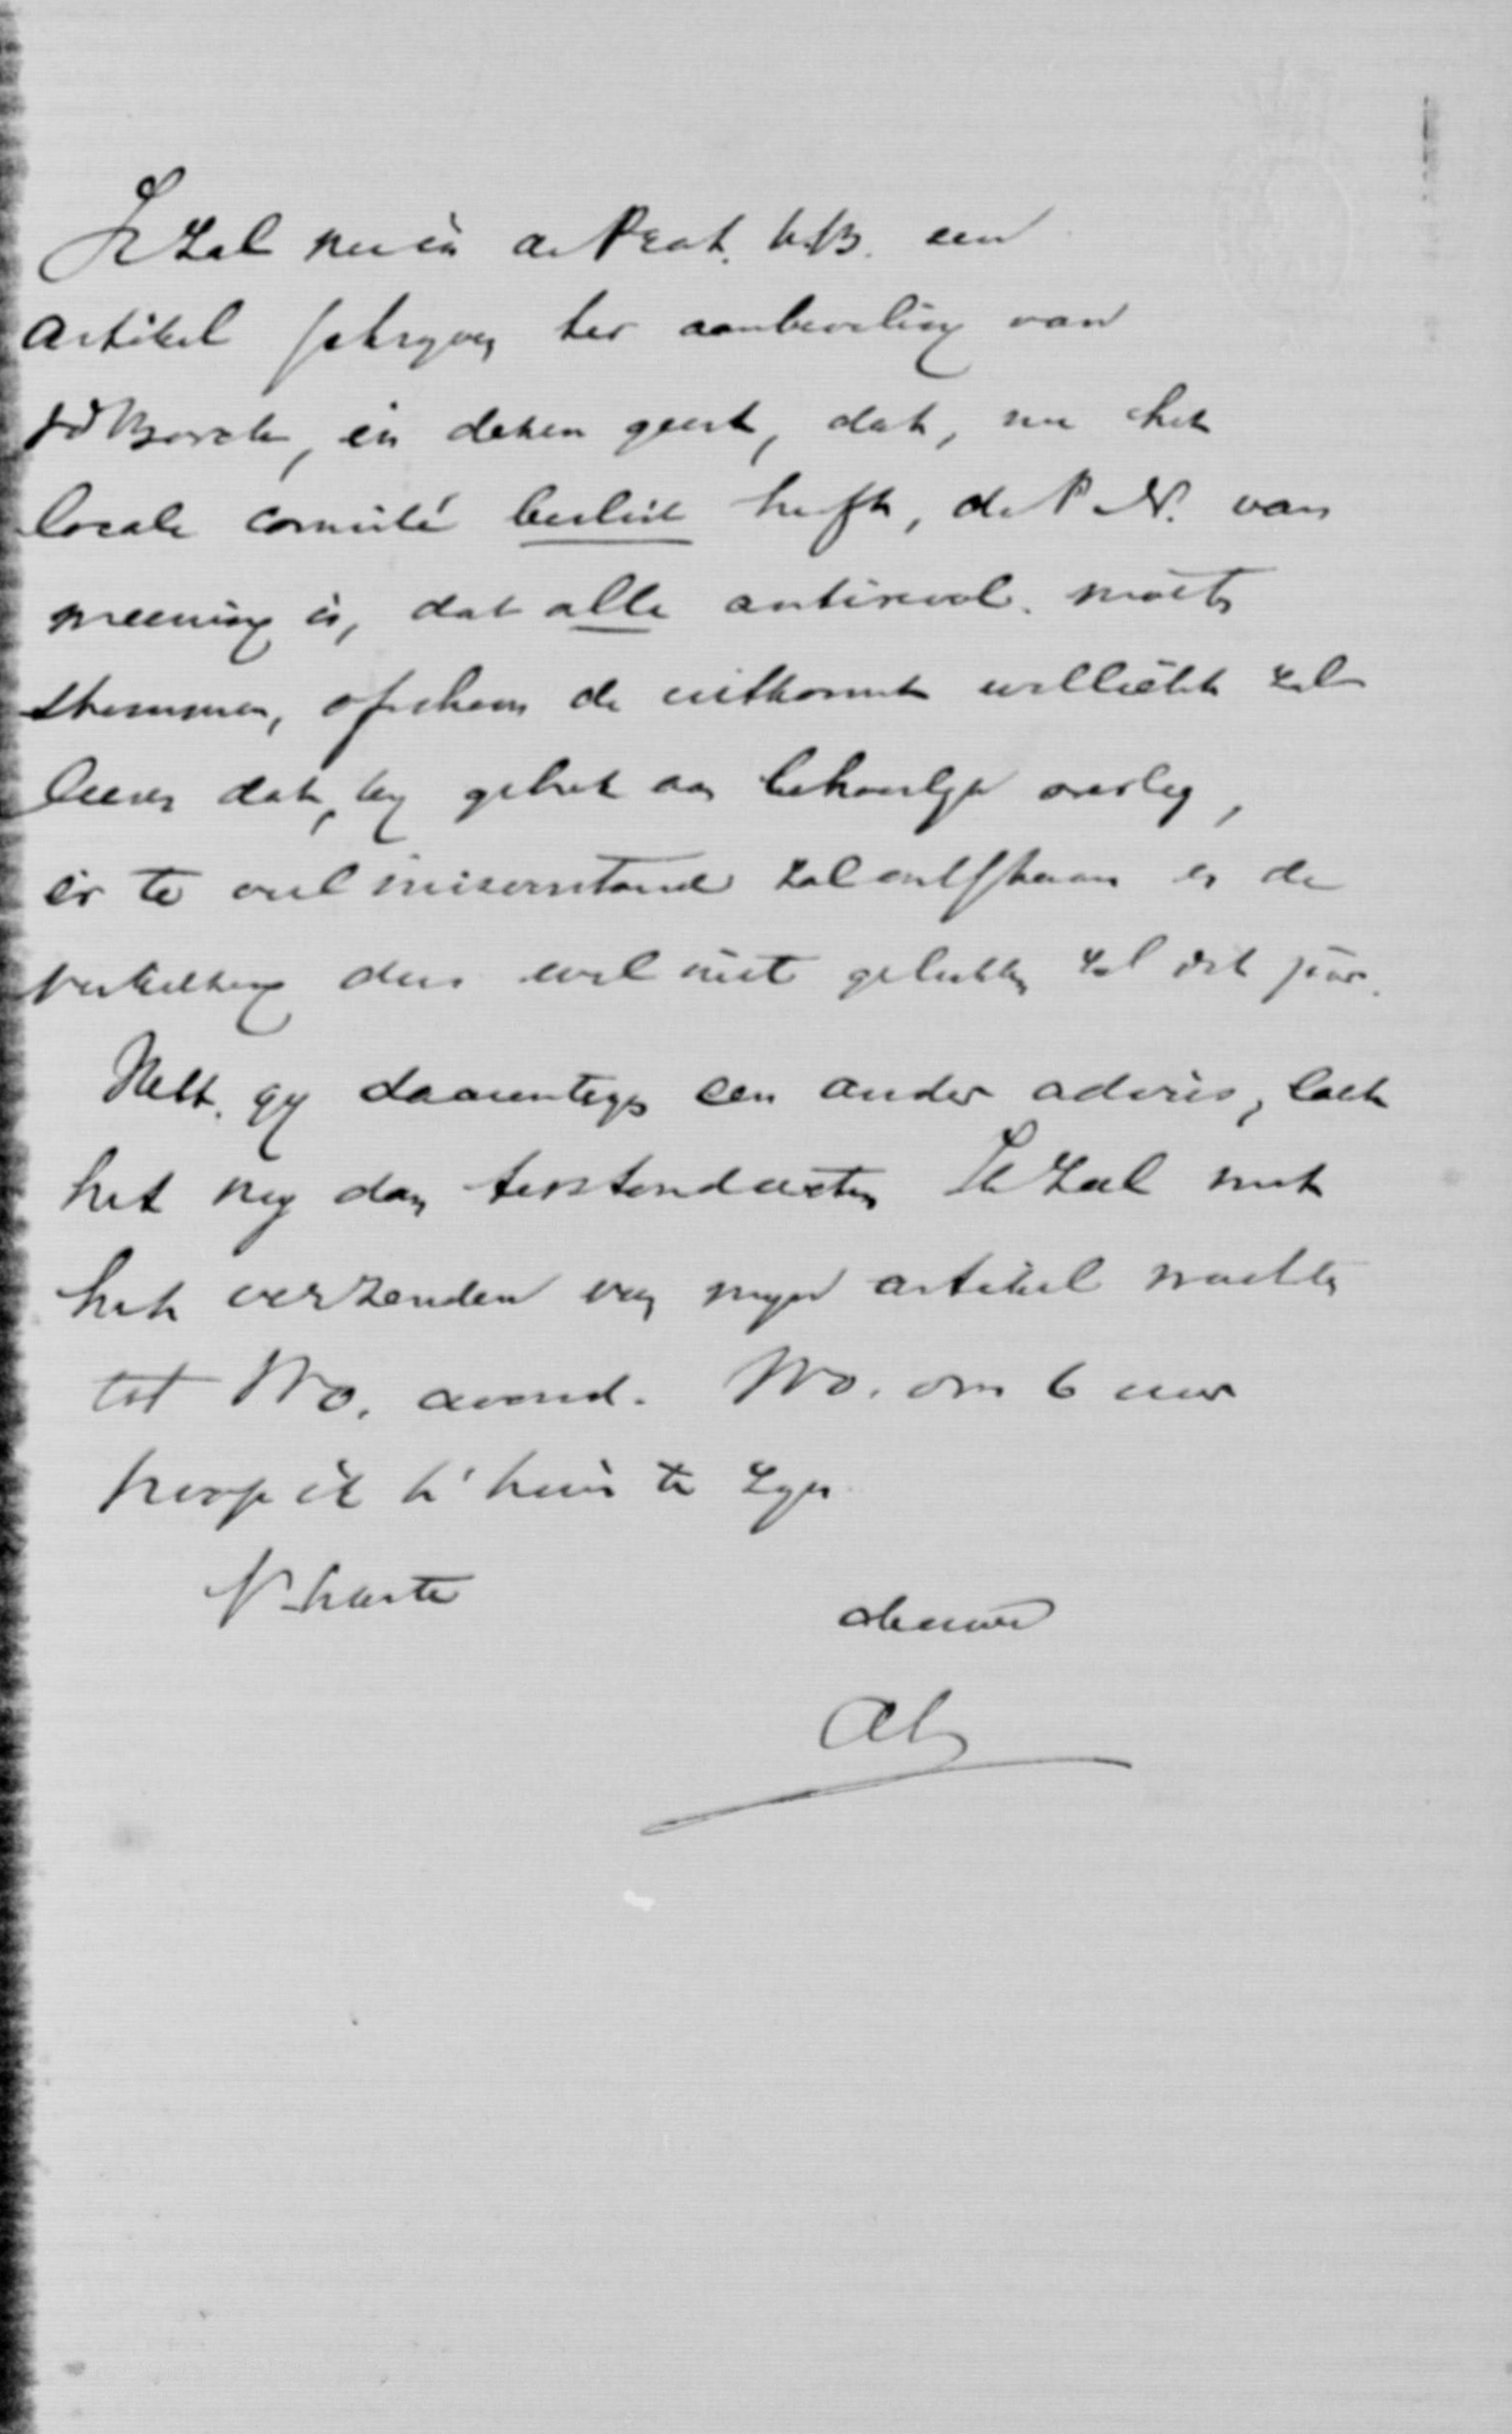 Ik zal nu in de Prot. N.B. een
artikel schryven ter aanbeveling van
vd Borch, in dezen geest, dat, nu het
locale comité beslist heeft, de P. N. van
meening is, dat alle antirevol. moeten
stemmen, ofschoon de uitkomst wellicht zal
leeren dat, by gebrek aan behoorlyk overleg,
er te veel misverstand zal ontstaan en de
verkiezing dus wel niet gelukkig zal zijn.
Hebt gy daarentegen een ander advies, laat
het my dan terstond weten. Ik zal met
het verzenden van myn artikel wachten
tot Wo. avond. Wo. om 6 uur
hoop ik t' huis te zyn.
Nhaste
de uwe